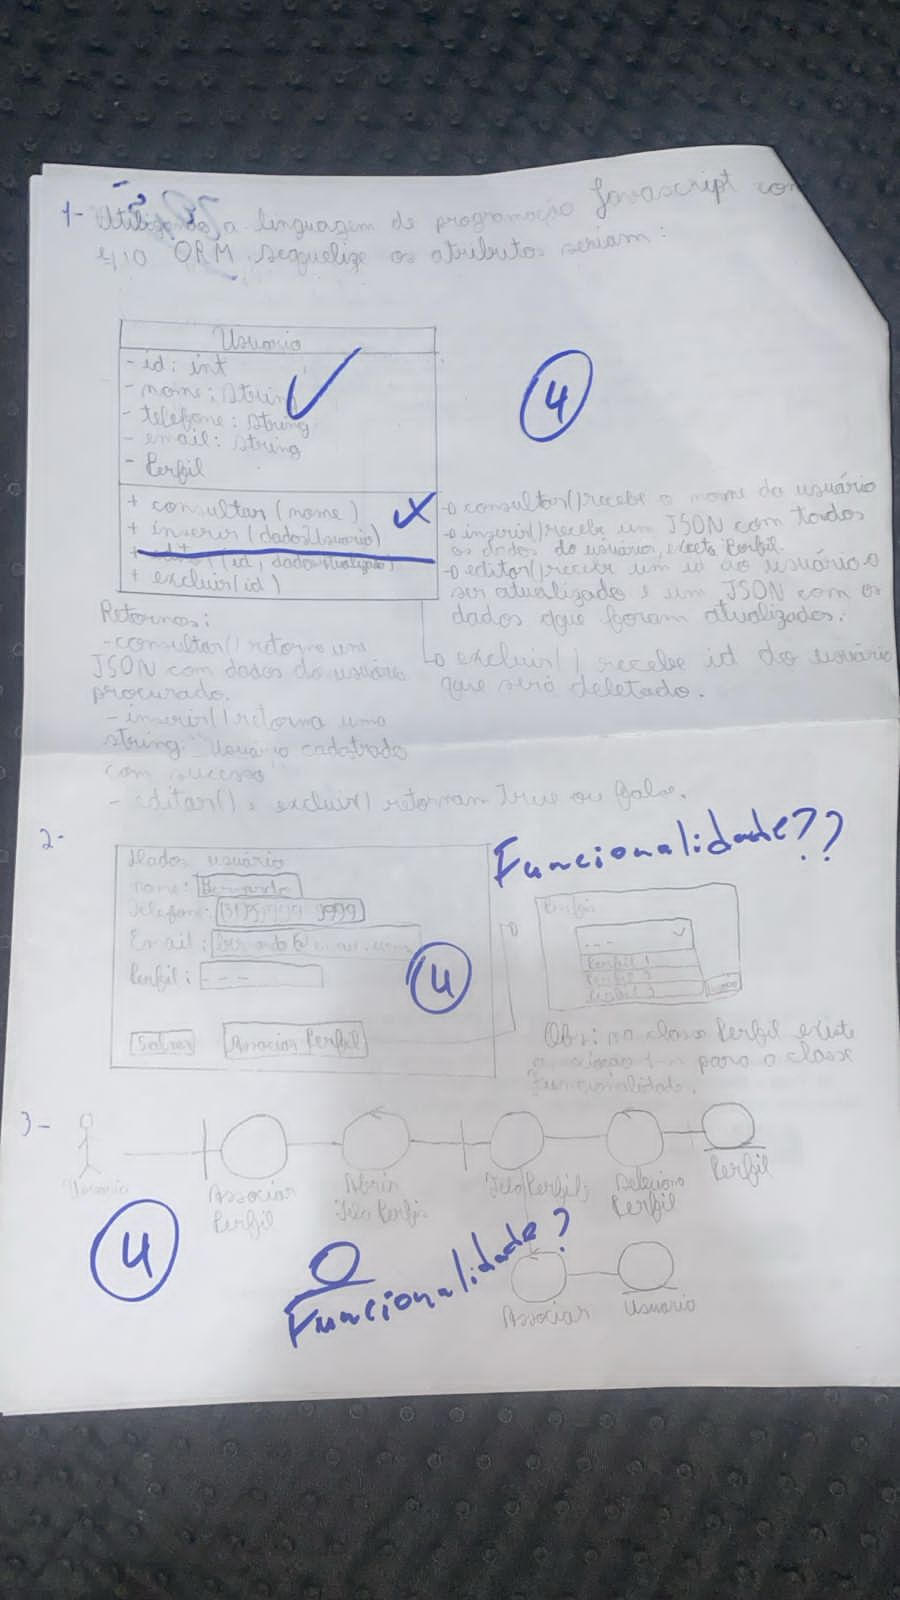 1- Utilizando a linguagem de programação Javascript com
o ORM sequelize os atributos seriam:
Usuario
- id: int
- nome: string
- telefone: string
- email: string
- Perfil
+ consultar (nome)
+ inserir (dadosUsuario)
+ editar (id, dadosAtualização)
+ excluir (id)
4
consultar() recebe o nome do usuário
inserir() recebe um JSON com todos
os dados do usuário, exceto Perfil.
editar() recebe um id do usuário a
ser atualizado e um JSON com os
dados que foram atualizados.
excluir() recebe id do usuário
que será deletado.
Retornos:
- consultar() retorna um
JSON com dados do usuário
procurado.
- inserir() retorna uma
string: "Usuário cadastrado
com sucesso"
- editar() e excluir() retornam True ou False.
2-
Funcionalidade??
Dados usuário
nome: Bernardo
Telefone: (31) 9999-9999
Email:
Perfil: ---
4
Salvar Associar Perfil
Perfis
---
Perfil 1
Perfil 2
Perfil 3
Obs: na classe Perfil existe
a relação 1-n para a classe
Funcionalidade.
3-
Usuario
Associar
Perfil
Abrir
Tela Perfis
Tela Perfis
Seleciona
Perfil
Perfil
4
Funcionalidade?
Associar
Usuario